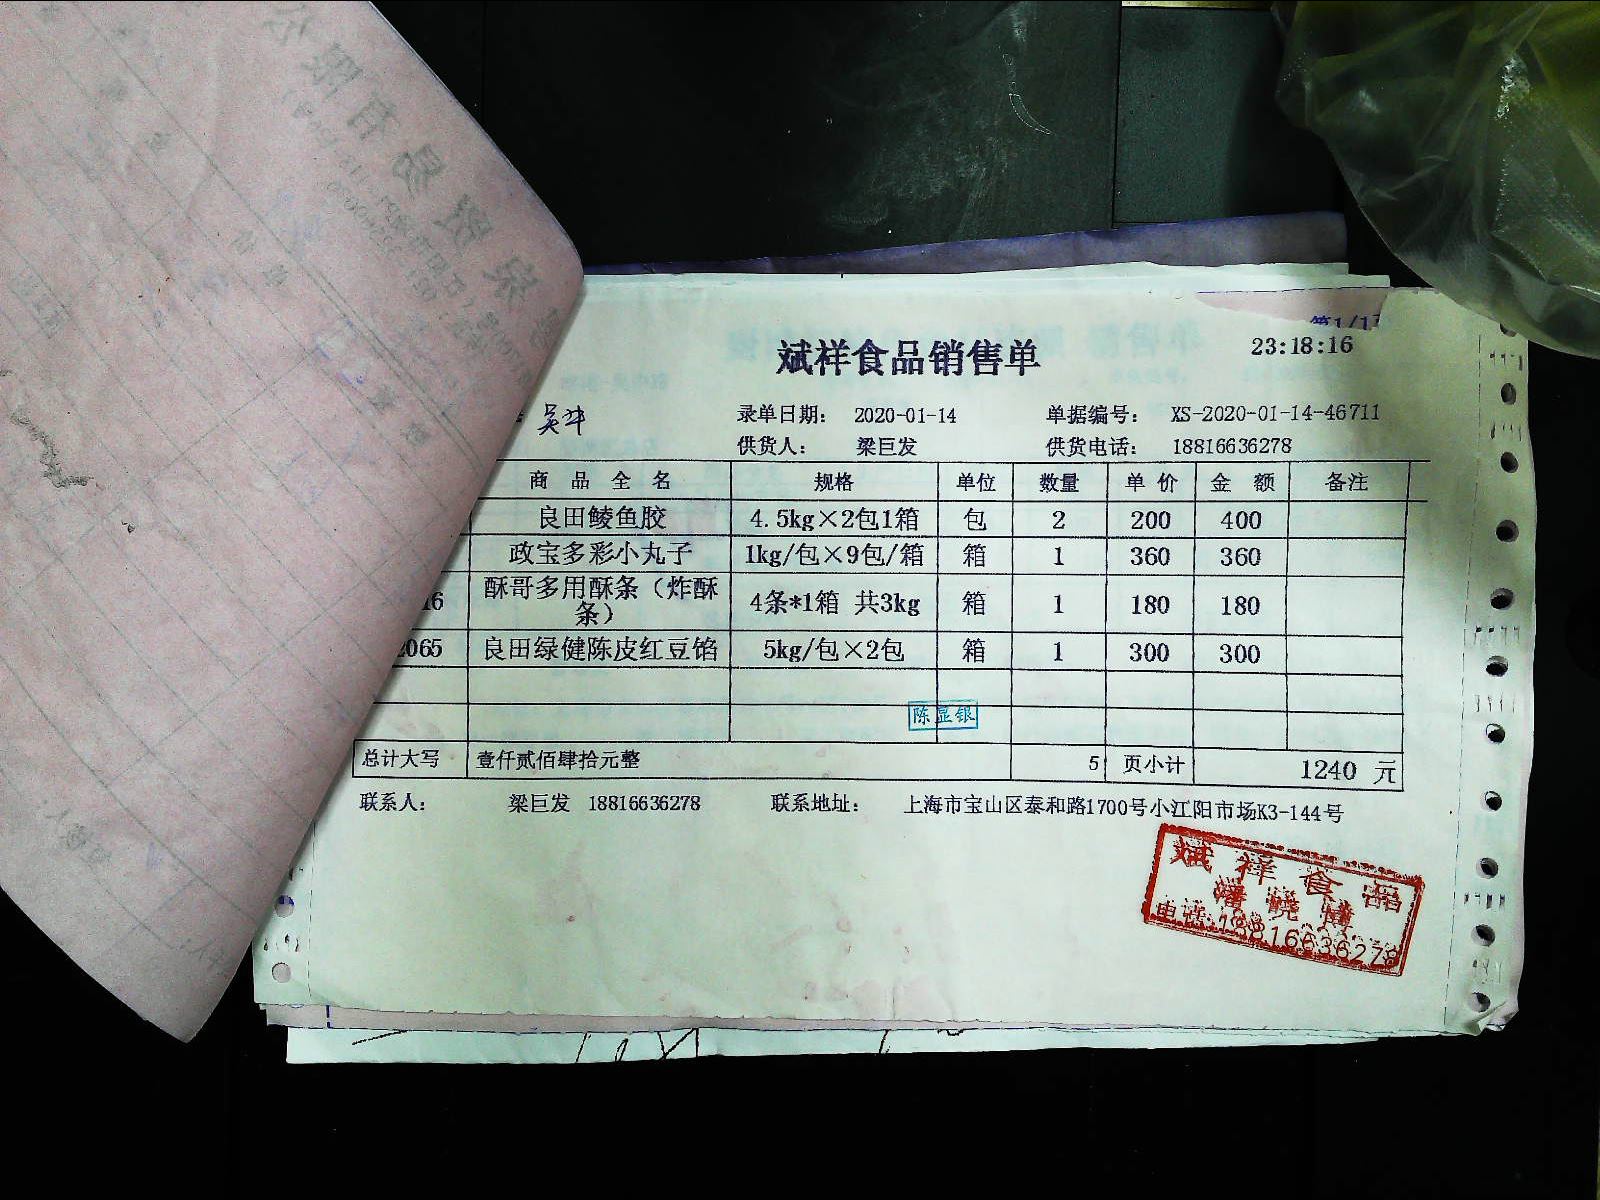 斌祥食品销售单
23:18:16
录单日期： 2020-01-14 单据编号： XS-2020-01-14-46711
供货人： 梁巨发 供货电话： 18816636278
商品全名 规格 单位 数量 单价 金额 备注
良田鲮鱼胶 4.5kg×2包1箱 包 2 200 400
政宝多彩小丸子 1kg/包×9包/箱 箱 1 360 360
16 酥哥多用酥条（炸酥条） 4条*1箱 共3kg 箱 1 180 180
2065 良田绿健陈皮红豆馅 5kg/包×2包 箱 1 300 300
陈显银
总计大写 壹仟贰佰肆拾元整 5 页小计 1240 元
联系人： 梁巨发 18816636278 联系地址： 上海市宝山区泰和路1700号小江阳市场K3-144号
斌祥食品
电话:18816636278